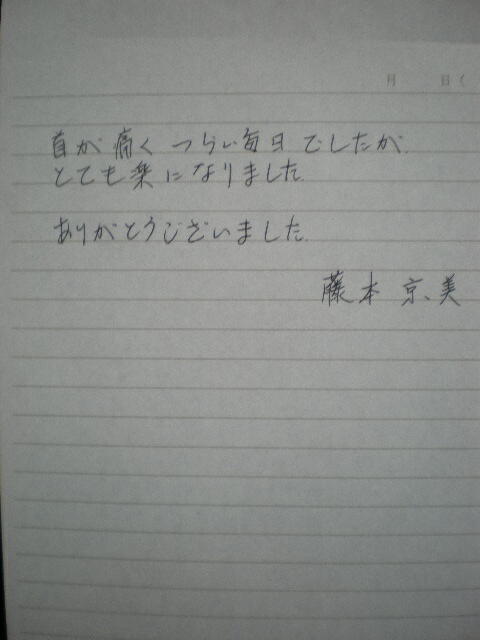 月 日(
首が痛くつらい毎日でしたが、
とても楽になりました。
ありがとうございました。
藤本京美